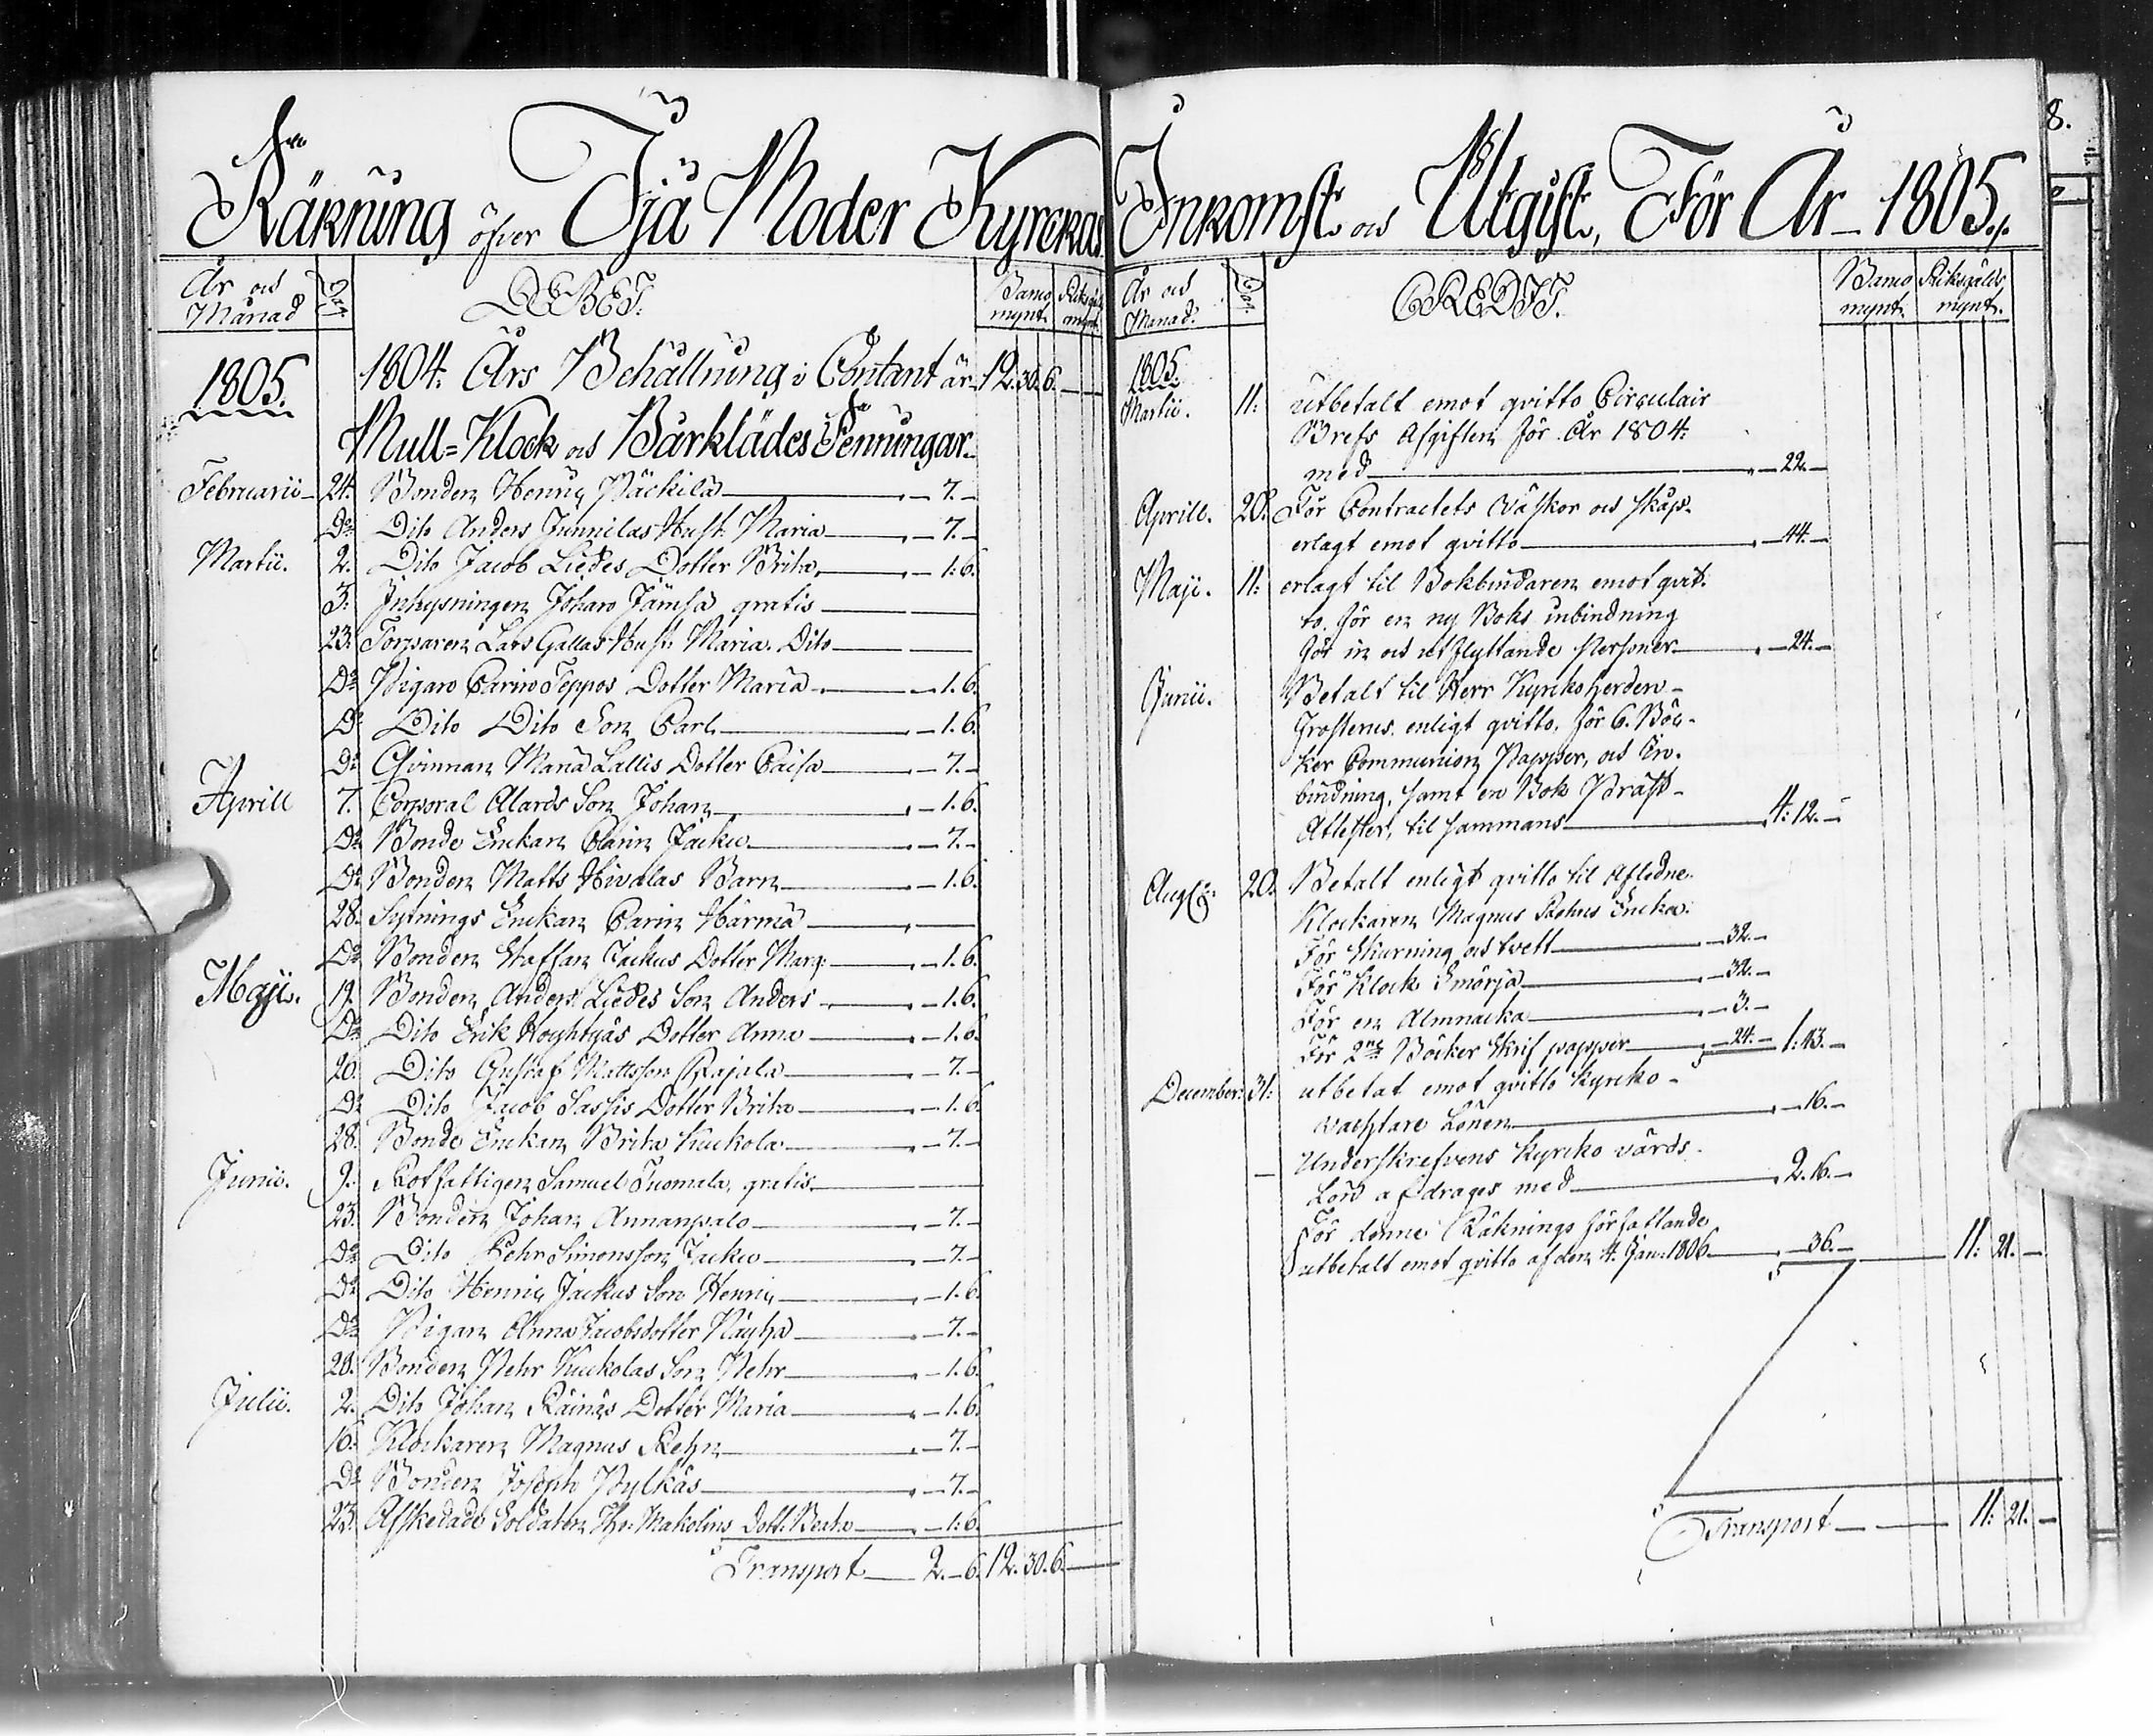 Räkning öfver Ijå Moder Kyrckas Inkomst och Utgift, För År 1805.
8.
År och Månad
Dag
DEBET.
Banco mynt.
Riksgälds mynt.
1805. 1804. Års Behållning i Contant är 12. 30. 6. —
Mull= Klock och Bårklädes Penningar.
Februarii 24. Bonden Henric Päckilä — 7. —
Do Dito Anders Junnilas Hust. Maria — 7. —
Martii. 2. Dito Jacob Liedes Dotter Brita — 1. 6.
3. Inhysningen Johan Jämsä gratis —
23. Torparen Lars Gallas Hust. Maria. Dito —
Do Pigan Carin Teppos Dotter Maria — 1. 6.
Do Dito Dito Son Carl — 1. 6.
Do Qvinnan Maria Lallis Dotter Caisa — 7. —
Aprill 7. Corporal Alards Son Johan — 1. 6.
Do Bonde Enckan Carin Jacku — 7. —
Do Bonden Matts Hivalas Barn — 1. 6.
28. Sytnings Enckan Carin Härmä —
Do Bonden Staffan Jackus Dotter Marg: — 1. 6.
Maji. 19. Bonden Anders Liedes Son Anders — 1. 6.
Do Dito Erik Hoyhtyäs Dotter Anna — 1. 6.
26. Dito Gustaf Mattsson Rajala — 7. —
Do Dito Jacob Sassis Dotter Brita — 1. 6.
28. Bonde Enckan Brita Kuckola — 7. —
Junii. 9. Rotfattigen Samuel Tuomala, gratis —
23. Bonden Johan Annanpalo — 7. —
Do Dito Pehr Simonsson Jacku — 7. —
Do Dito Henric Jackus Son Henric — 1. 6.
Do Pigan Anna Jacobsdotter Näyhä — 7. —
28. Bonden Pehr Kuckolas Son Pehr — 1. 6.
Julii. 2. Dito Johan Räinäs Dotter Maria — 1. 6.
16. Klockaren Magnus Rehn — 7. —
Do Bonden Joseph Pylkäs — 7. —
23. Afskedade Soldaten Tho: Makelins Dott. Beata — 1. 6.
Transport — 2. — 6. 12. 30. 6. —
År och Månad.
Dag.
CREDIT.
Banco mynt.
Riksgälds mynt.
1805.
Martii. 11. utbetalt emot qvitto Circulair
Brefs Afgiften för År 1804.
med — 22. —
Aprill. 20. För Contractets Väskor och skåp.
erlagt emot qvitto — 44. —
Maji. 11. erlagt til Bokbindaren emot qvit-
to. för en ny Boks inbindning
för in och utflyttande Personer — 24. —
Junii. Betalt til Herr Kyrkoherden
Frosterus enligt qvitto, för 6. Böc-
ker Communion Papper, och In-
bindning, samt en Bok Präst-
Attester, til sammans — 4. 12. —
Aug: 20. Betalt enligt qvitto til Afledne
Klockaren Magnus Rehns Encka:
För skurning och tvett — 32. —
För Klock Smörja — 32. —
För en Almnacka — 3. —
För 2ne Böcker Skrif papper — 24. — 1. 43. —
December. 31. utbetat emot qvitto Kyrcko-
wachtare Lönen — 16. —
— Underskrefvens Kyrcko värds.
Lön afdrages med — 2. 16. —
För denne Räknings författande
utbetalt emot qvitto af den 4. Jan: 1806 — 36. — 11. 21. —
Transport — 11. 21. —